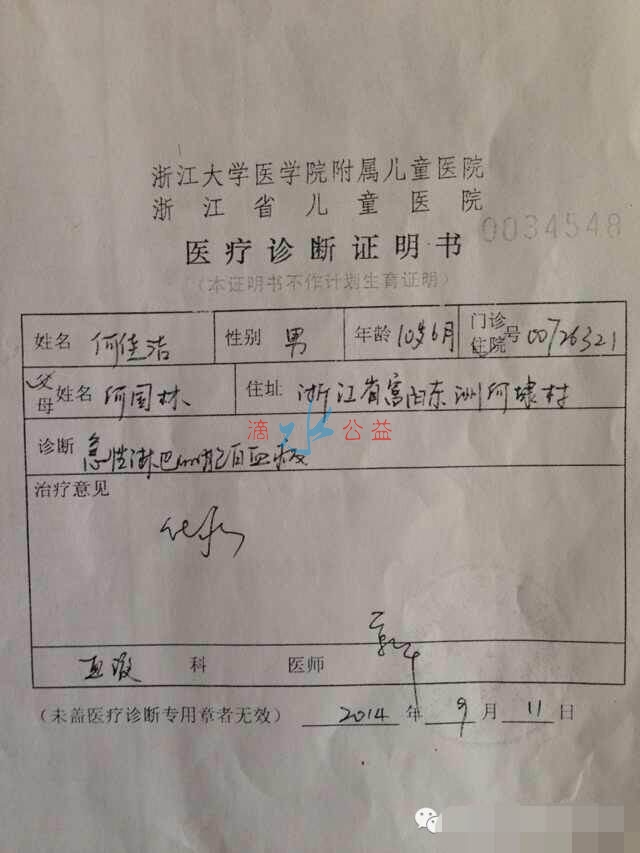 浙江大学医学院附属儿童医院
浙江省儿童医院
0034548
医疗诊断证明书
(本证明书不作计划生育证明)
姓名 何佳浩 性别 男 年龄 10岁6月 门诊住院号 00726321
父母姓名 何国林 住址 浙江省富阳东洲何埭村
滴水公益
诊断 急性淋巴细胞白血病
治疗意见
化疗
血液 科 医师
(未盖医疗诊断专用章者无效) 2014 年 9 月 11 日